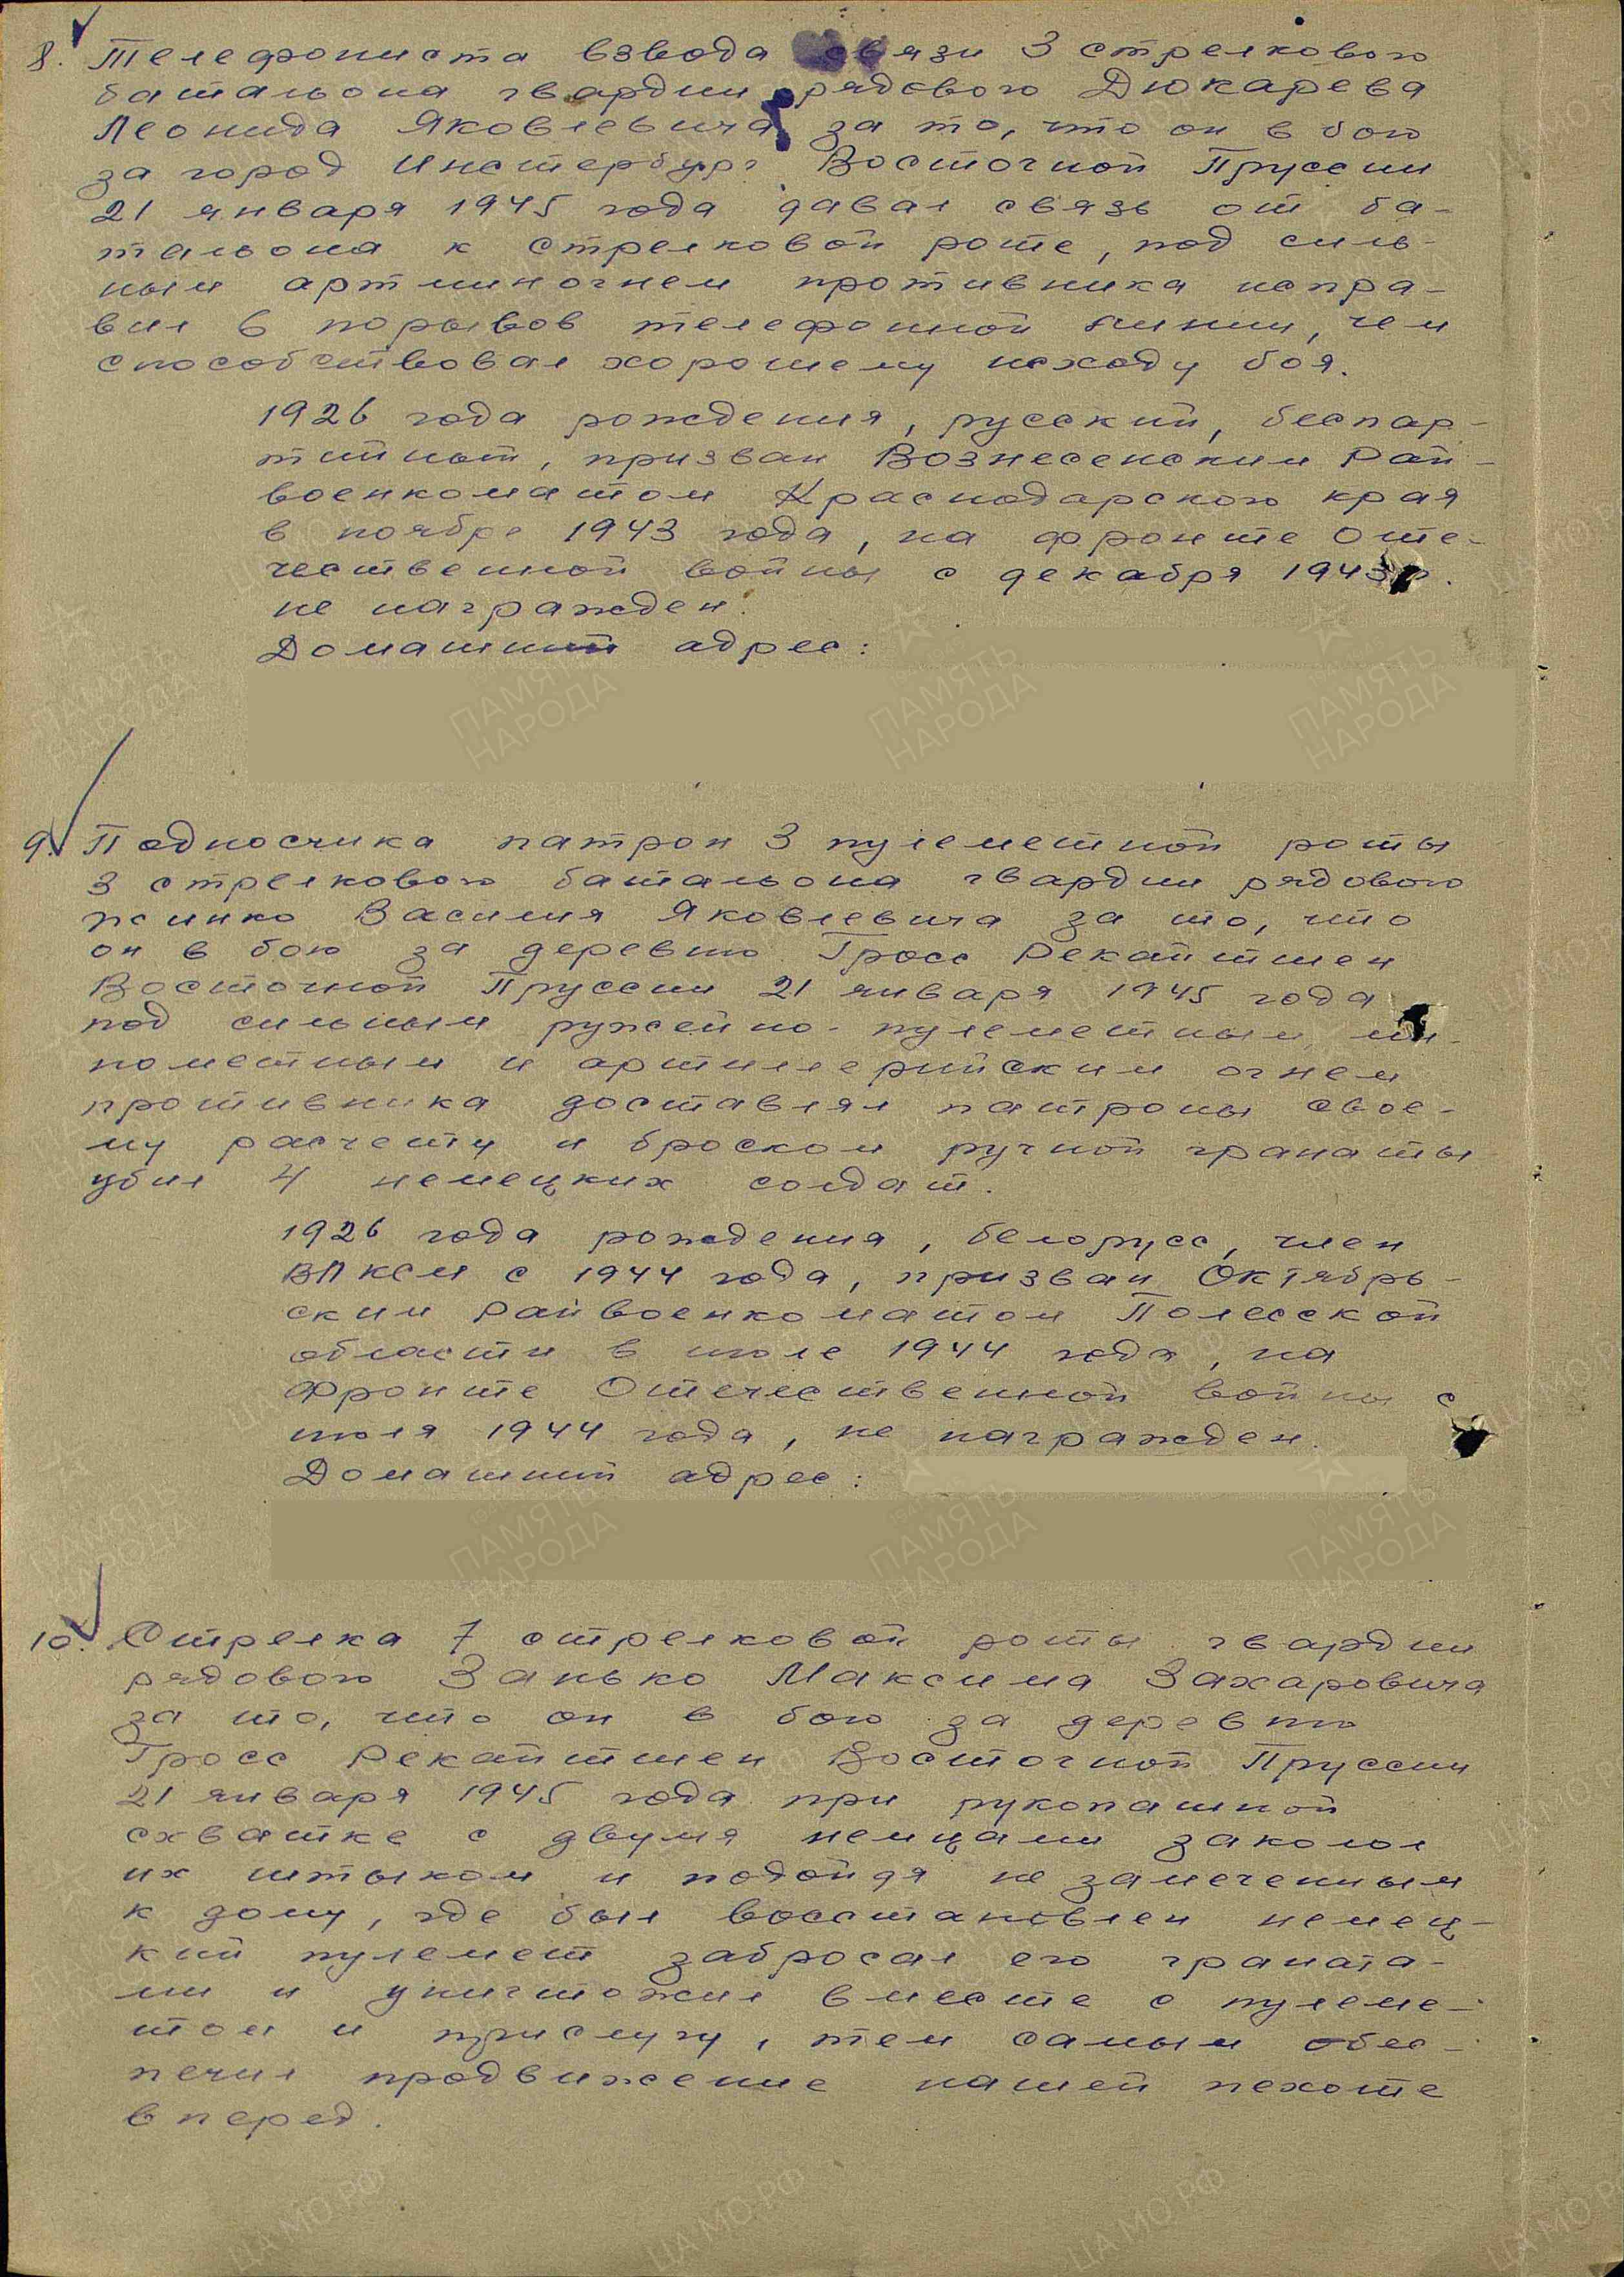 8. Телефониста взвода связи 3 стрелкового
батальона гвардии рядового Дюкарева
Леонида Яковлевича за то, что он в бою
за город Инстербург Восточной Пруссии
21 января 1945 года давая связь от ба-
тальона к стрелковой роте, под силь-
ным артминогнем противника испра-
вил 6 порывов телефонной линии, чем
способствовал хорошему исходу боя.
1926 года рождения, русский, беспар-
тийный, призван Вознесенским Рай-
военкоматом Краснодарского края
в ноябре 1943 года, на фронте Оте-
чественной войны с декабря 1943 г.
не награжден.
Домашний адрес:
9. Подносчика патрон 3 пулеметной роты
3 стрелкового батальона гвардии рядового
Василия Яковлевича за то, что
он в бою за деревню Гросс Рекайтшен
Восточной Пруссии 21 января 1945 года
под сильным ружейно-пулеметным, ми-
нометным и артиллерийским огнем
противника доставлял патроны свое-
му расчету и броском ручной гранаты
убил 4 немецких солдат.
1926 года рождения, белорусс, член
ВЛКСМ с 1944 года, призван Октябрь-
ским Райвоенкоматом Полесской
области в июле 1944 года, на
фронте Отечественной войны с
июля 1944 года, не награжден.
Домашний адрес:
10. Стрелка 7 стрелковой роты гвардии
рядового Занько Максима Захаровича
за то, что он в бою за деревню
Гросс Рекайтшен Восточной Пруссии
21 января 1945 года при рукопашной
схватке с двумя немцами заколол
их штыком и подойдя не замеченным
к дому, где был восстановлен немец-
кий пулемет забросал его граната-
ми и уничтожил вместе с пулеме-
том и прислугу, тем самым обес-
печил продвижение нашей пехоте
вперед.
ПАМЯТЬ НАРОДА
ЦА МО РФ